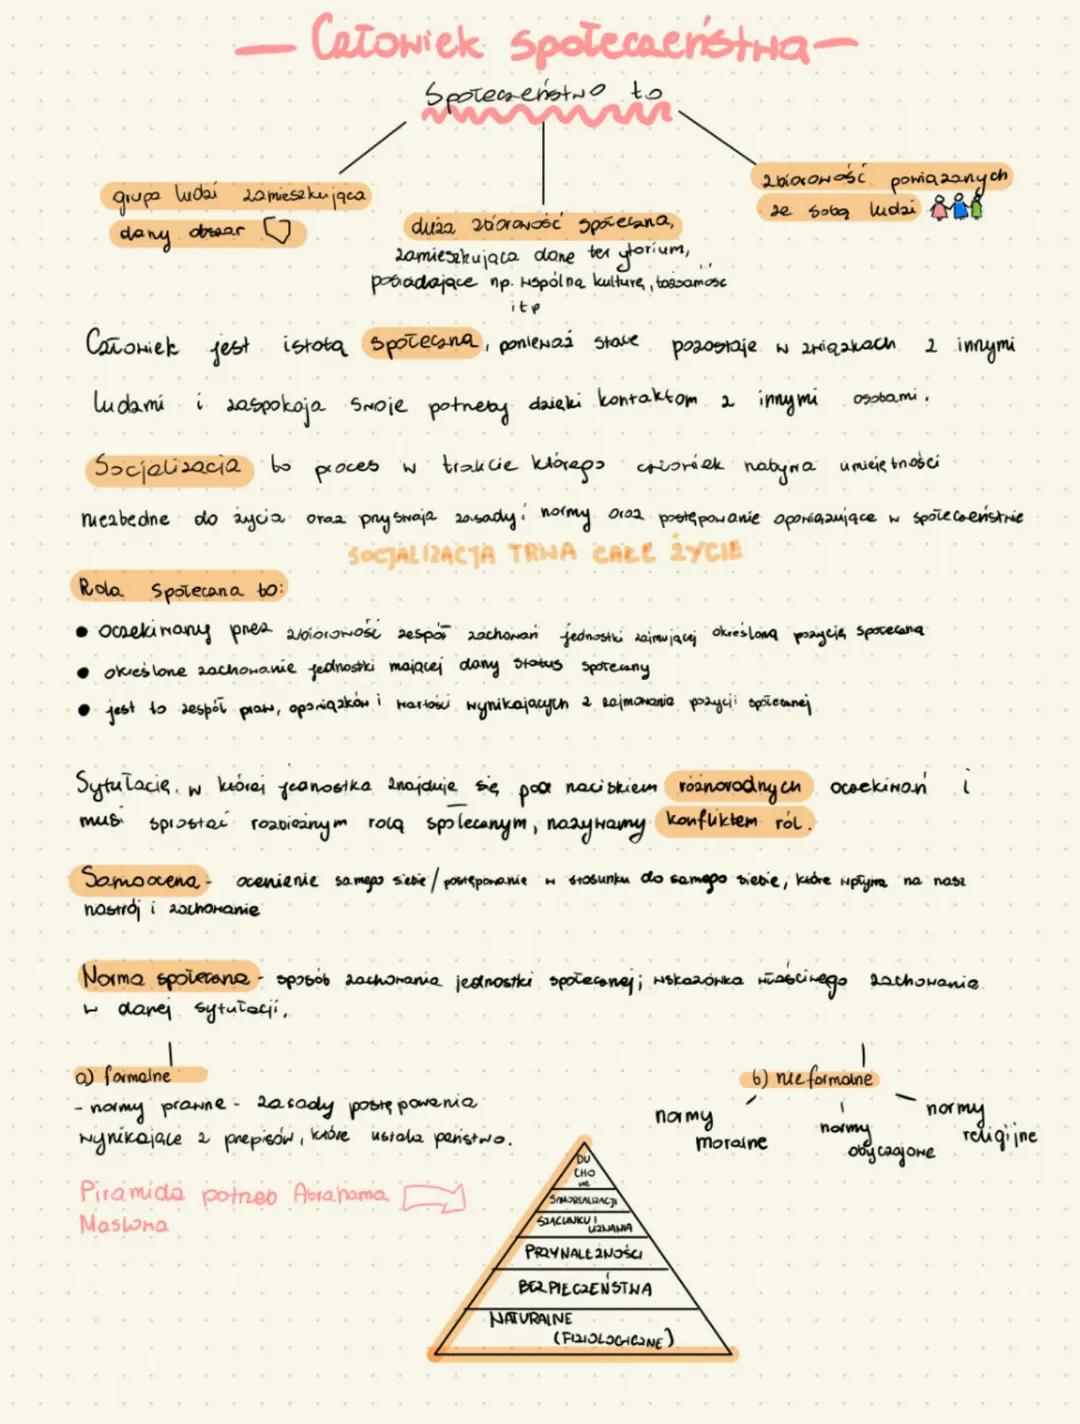 Człowiek społeczeństwa
Społeczeństwo to
grupa ludzi zamieszkująca
dany obszar
duża zbiorowość społeczna,
zamieszkująca dane terytorium,
posiadające np. wspólną kulturę, tożsamość
itp
zbiorowość powiązanych
ze sobą ludzi
Człowiek jest istotą społeczną, ponieważ stale pozostaje w związkach z innymi
ludzmi i zaspokaja swoje potrzeby dzięki kontaktom z innymi osobami.
Socjalizacja to proces w trakcie którego człowiek nabywa umiejętności
niezbędne do życia oraz przyswaja zasady i normy oraz postępowanie opowiązujące w społeczeństwie
SOCJALIZACJA TRWA CAŁE ŻYCIE
Rola Społeczna to:
• oczekiwany przez zbiorowość zespół zachowań jednostki zajmującej określoną pozycję społeczną
• określone zachowanie jednostki mającej dany status społeczny
• jest to zespół praw, opowiązków i wartości wynikających z zajmowania pozycji społecznej
Sytułacje, w której jednostka znajduje się pod naciskiem różnorodnych oczekiwań i
musi sprostać rozbieżnym rolą społecznym, nazywamy konfliktem ról.
Samoocena - ocenienie samego siebie/postępowanie w stosunku do samego siebie, które wpływa na nasz
nastrój i zachowanie
Norma społeczna - sposób zachowania jednostki społecznej; wskazówka właściwego zachowania
w danej sytułacji.
a) formalne
- normy prawne - zasady postępowania
wynikające z przepisów, które ustala państwo.
b) nieformalne
normy
moralne
normy
obyczajowe
normy
religijne
Piramida potrzeb Abrahama
Maslowa
DU
CHO
WE
SAMOREALIZACJI
SZACUNKU I
UZNANIA
PRZYNALEŻNOŚCI
BEZPIECZEŃSTWA
NATURALNE
(FIZJOLOGICZNE)